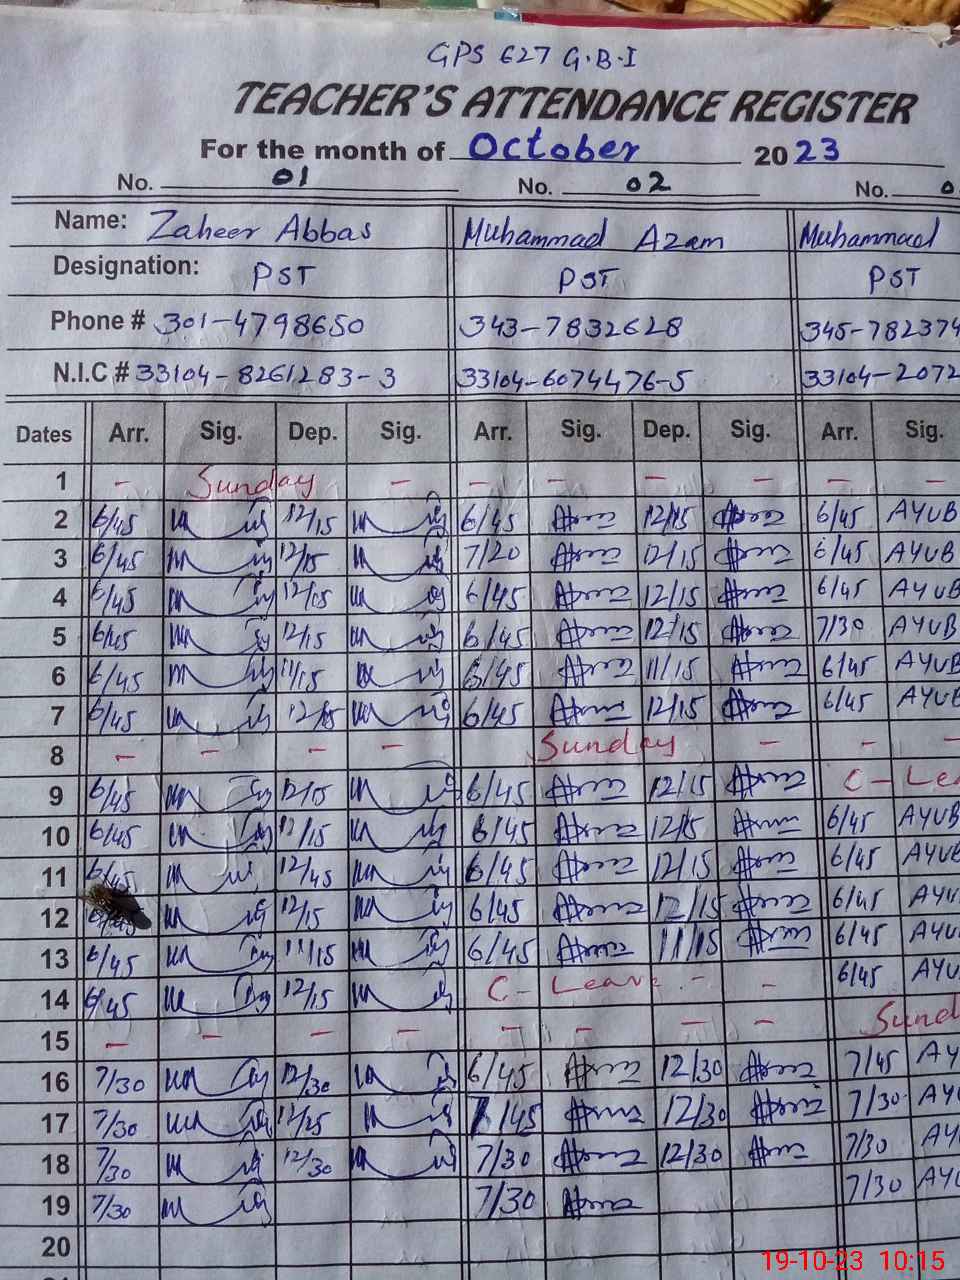 GPS 627 G.B.I
TEACHER'S ATTENDANCE REGISTER
For the month of October 2023
No. 01 No. 02 No. 0
Name: Zaheer Abbas Muhammad Azam Muhammad
Designation: PST PST PST
Phone # 301-4798650 343-7832628 345-782374
N.I.C # 33104-8261283-3 33104-6074476-5 33104-2072
Dates Arr. Sig. Dep. Sig. Arr. Sig. Dep. Sig. Arr. Sig.
1 - Sunday - - - - - - -
2 6/45 12/15 6/45 12/15 6/45 AYUB
3 6/45 12/15 7/20 12/15 6/45 AYUB
4 6/45 12/15 6/45 12/15 6/45 AYUB
5 6/45 12/15 6/45 12/15 7/30 AYUB
6 6/45 11/15 6/45 11/15 6/45 AYUB
7 6/45 12/15 6/45 12/15 6/45 AYUB
8 - - - - Sunday - - -
9 6/45 12/15 6/45 12/15 C-Lea
10 6/45 12/15 6/45 12/15 6/45 AYUB
11 6/45 12/45 6/45 12/15 6/45 AYUB
12 12/15 6/45 12/15 6/45 AYU
13 6/45 11/15 6/45 11/15 6/45 AYU
14 6/45 12/15 C-Leave - - 6/45 AYU
15 - - - - - - - - Sund
16 7/30 12/30 6/45 12/30 7/45 AY
17 7/30 /45 12/30 7/30 AY
18 7/30 12/30 7/30 12/30 7/30 AY
19 7/30 7/30 7/30 AYU
20
19-10-23 10:15